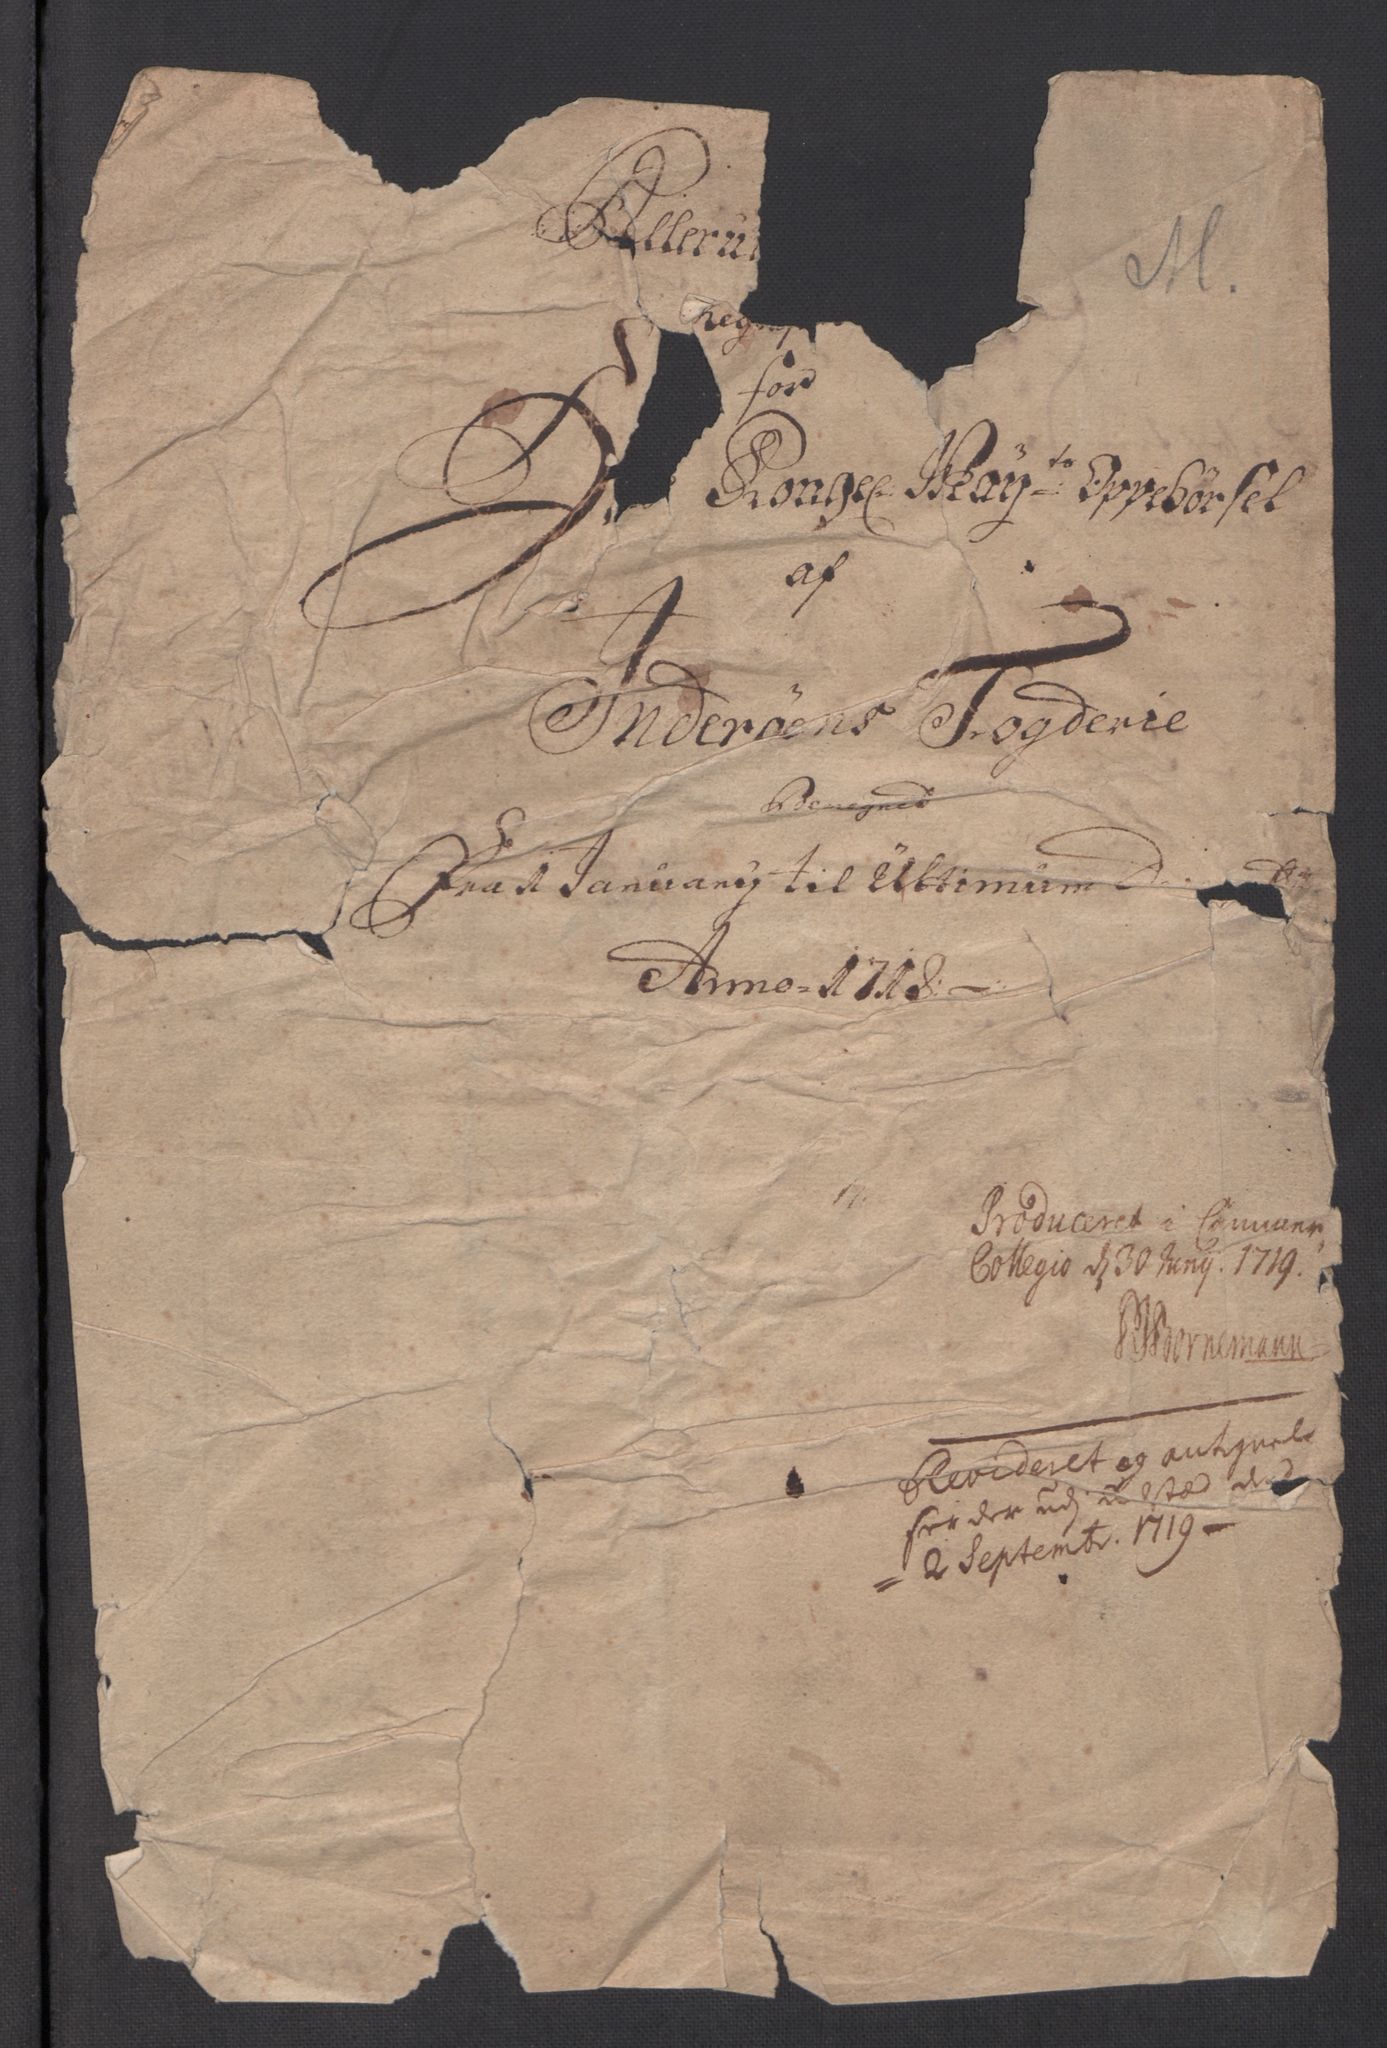 Allerun
M.
Regnsk
for
Kongel: May:ts Oppebörsel
af
Inderöens Fogderie
Beregnet
Fra 1 Januarij til Ultimum
Anno 1718:
Produceret i Cammer
Collegio d 30 Junij. 1719.
Bornemann
Revideret og antegnel
ser der udj udsted dend
2 Septembr. 1719